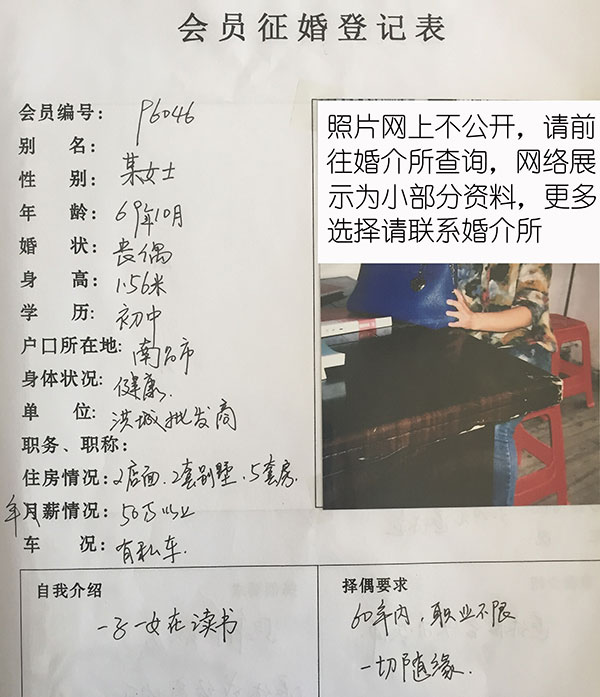 会员征婚登记表
会员编号: P6046
别 名:
性 别: 某女士
年 龄: 69年10月
婚 状: 丧偶
身 高: 1.56米
学 历: 初中
户口所在地: 南昌市
身体状况: 健康.
单 位: 洪城批发商
职务、职称:
住房情况: 2店面.2套别墅.5套房.
年月薪情况: 50万以上
车 况: 有私车.
照片网上不公开，请前
往婚介所查询，网络展
示为小部分资料，更多
选择请联系婚介所
自我介绍
一子一女在读书
择偶要求
60年内，职业不限
一切随缘.